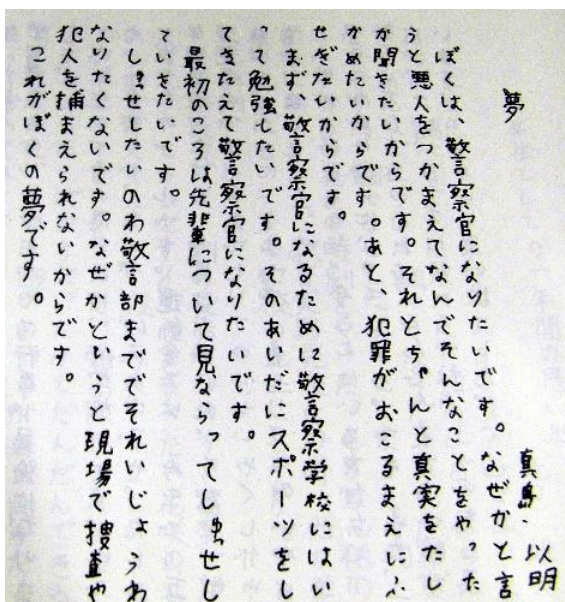 夢　真島・以明
ぼくは、警察官になりたいです。なぜかと言
うと悪人をつかまえてなんでそんなことをやった
か聞きたいからです。それとちゃんと真実をたし
かめたいからです。あと、犯罪がおこるまえにふ
せぎたいからです。
まず、警察官になるために警察学校にはい
って勉強したいです。そのあいだにスポーツをし
てきたえて警察官になりたいです。
最初のころは先輩について見ならってし出せし
ていきたいです。
し出せしたいのわ警部まででそれいじょうわ
なりたくないです。なぜかというと現場で捜査や
犯人を捕まえられないからです。
これがぼくの夢です。